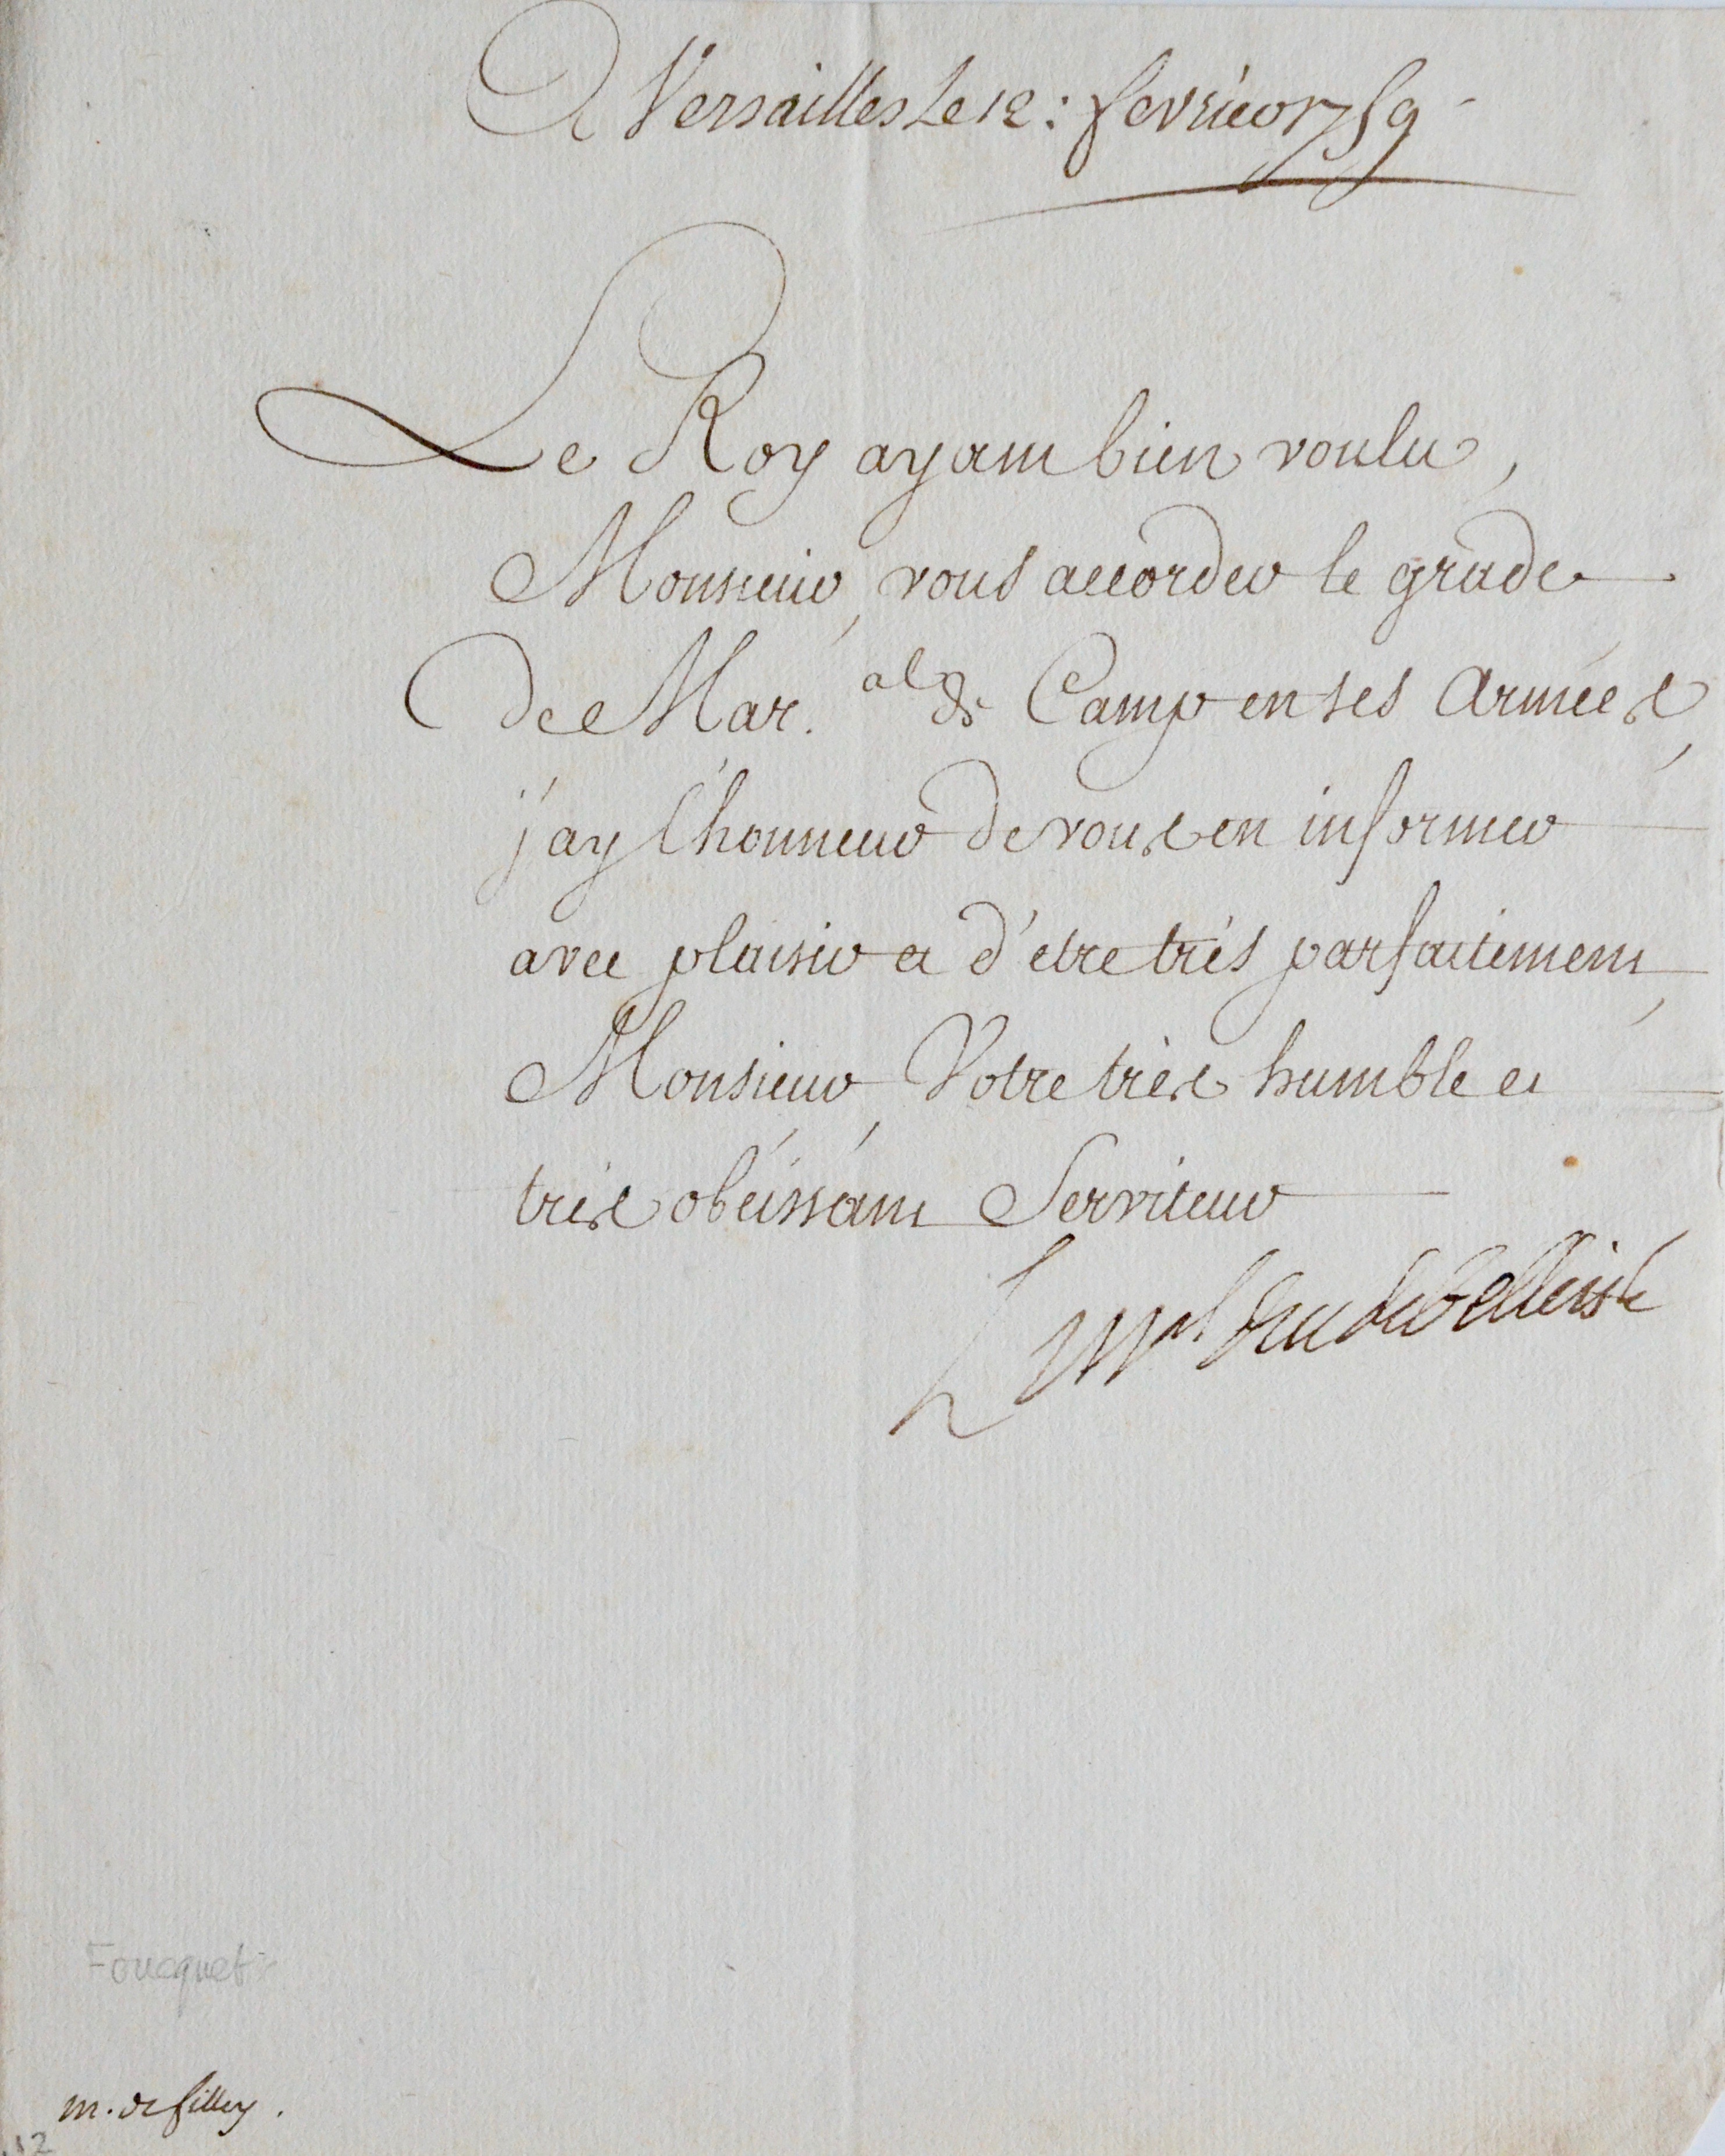 A Versailles Le 12: fevrier 1759
Le Roy ayant bien voulu,
Monsieur, vous accorder le grade
De Mar.al de Camp en ses Armées,
j'ay l'honneur de vous en informer
avec plaisir et d'etre trés parfaitement,
Monsieur, Votre très humble et
très obéissant Serviteur
Le Mal duc de belleisle
Foucquet
m. de filley.
12